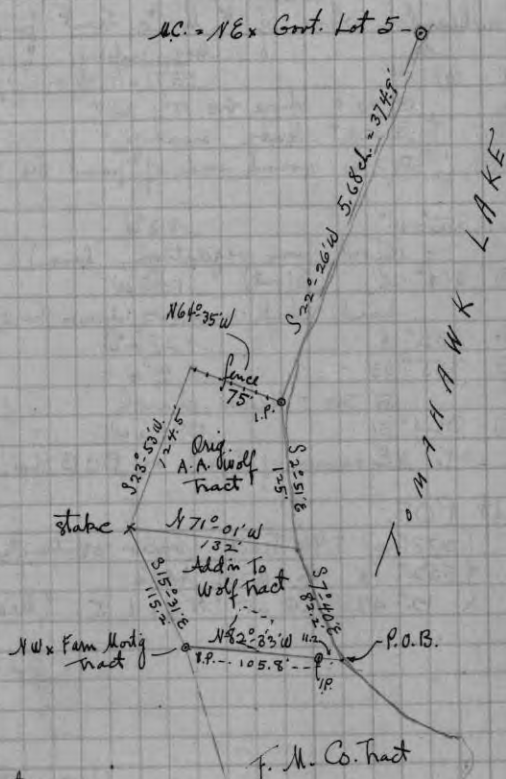 M.C. = NEx Govt. Lot 5
5.68 ch. = 374.9'
S 22°-26' W
TOMAHAWK LAKE
N 64°-35' W
fence
75'
I.P.
S 23°-53' W.
124.5'
Orig.
A.A. Wolf
Tract
S 2°-51' E
125'
stake
N 71°-01' W
132'
Add'n To
Wolf Tract
S 15°-31' E
115.2'
S 7°-40' E
82.2'
NWx Farm Mortg
Tract
N 82°-33' W
11.2
P.O.B.
105.8'
I.P.
F. M. Co. Tract